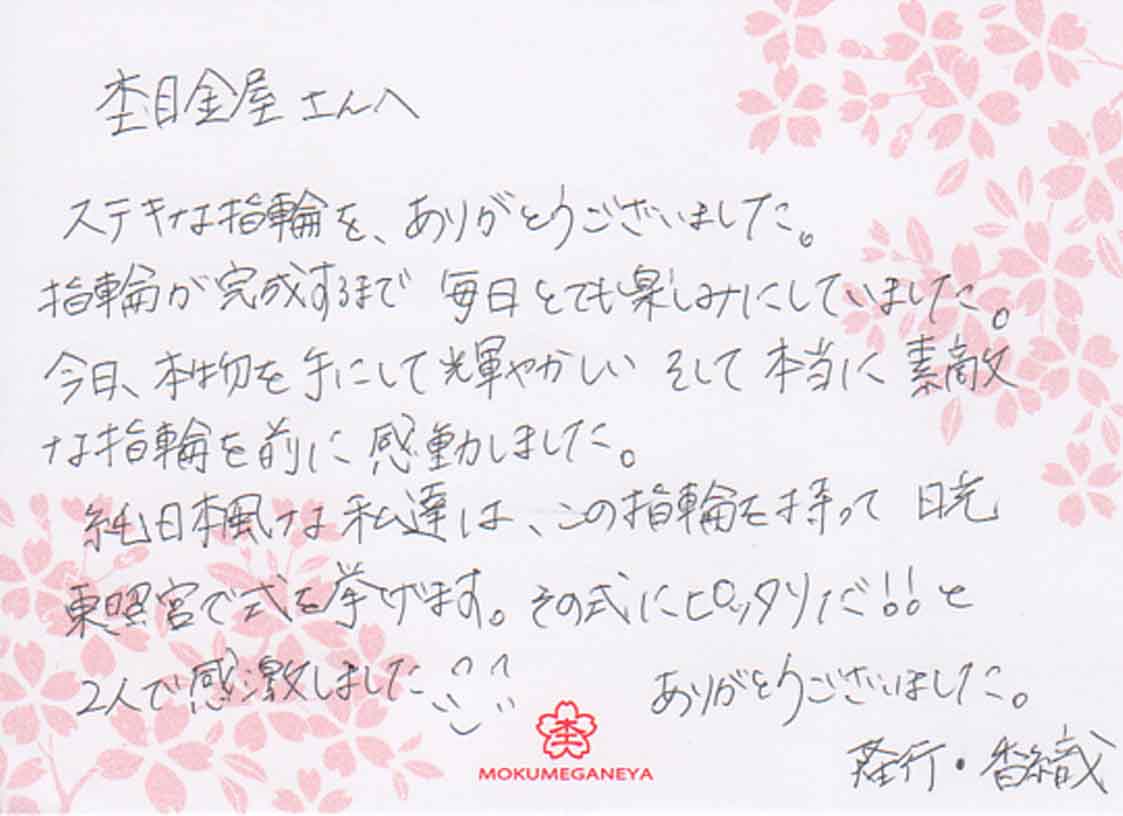 杢目金屋さんへ
ステキな指輪を、ありがとうございました。
指輪が完成するまで 毎日とても楽しみにしていました。
今日、本物を手にして輝やかしい そして本当に素敵
な指輪を前に感動しました。
純日本風な私達は、この指輪を持って 日光
東照宮で式を挙げます。その式にピッタリだ!!と
2人で感激しました
ありがとうございました。
杢
MOKUMEGANEYA
行・香織